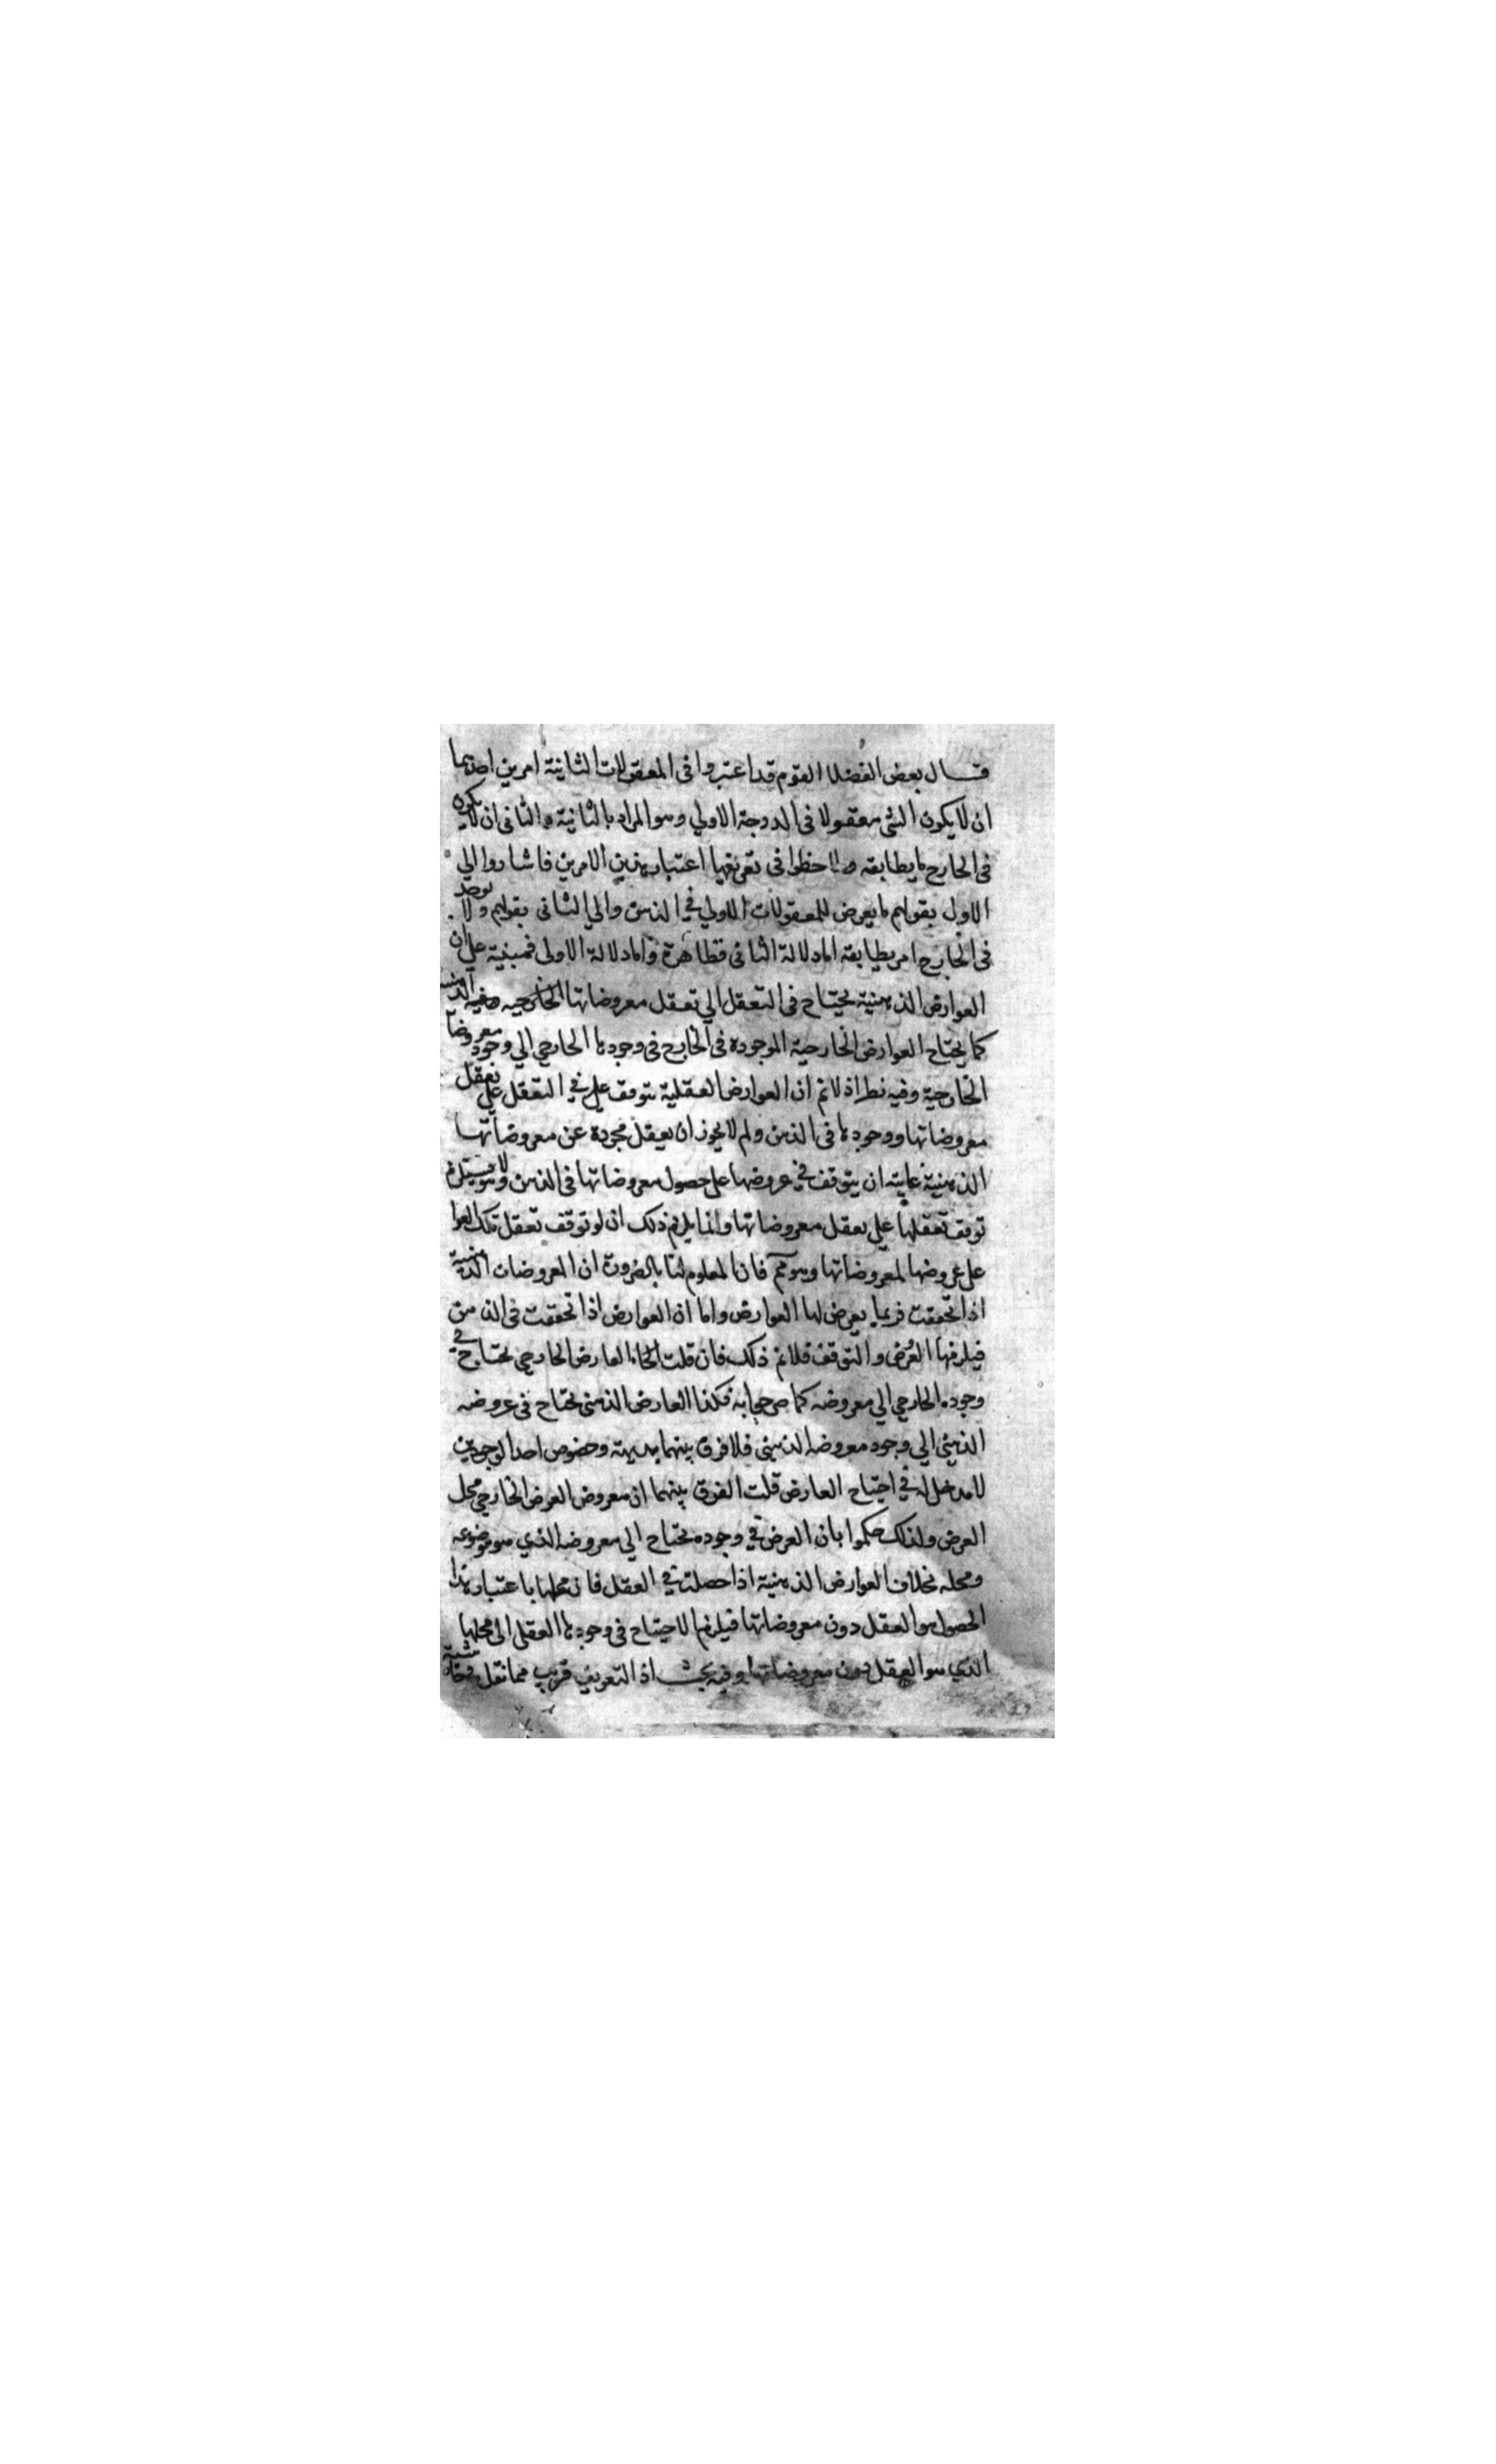 قال بعض الفضلا القوم قد اعتبروا فى المعقولات الثانية امرين احدهما
ان لا يكون الشى معقولا فى الدرجة الاولي وهو المراد بالثانية والثانى ان لا يكون
فى الخارج ما يطابقه ولاحظوا فى تعريفها اعتبار هذين الامرين فاشاروا الي
الاول بقولهم ما يعرض للمعقولات الاولي في الذهن والي الثانى بقولهم ولا يوجد
فى الخارج امر يطابقه اما دلالة الثانى فظاهرة واما دلالة الاولى فمبنية علي ان
العوارض الذهنية يحتاج فى التعقل الي تعقل معروضاتها
كما يحتاج العوارض الخارجية الموجودة فى الخارج فى وجودها الخارجي الي وجود معروضاتها
الخارجية وفيه نظر اذ لا نم ان العوارض العقلية يتوقف في التعقل علي تعقل
معروضاتها ووجودها فى الذهن ولم لا يجوز ان يعقل مجردة عن معروضاتها
الذهنية غايته ان يتوقف في عروضها على حصول معروضاتها فى الذهن وهو لا يستلزم
توقف تعقلها علي تعقل معروضاتها وانما يلزم ذلك ان لو توقف تعقل تلك العوا
على عروضها لمعروضاتها وهو مم فان المعلوم لنا بالضرورة ان المعروضات الذهنية
اذا تحققت فربما يعرض لها العوارض واما ان العوارض اذا تحققت فى الذهن
فيلزمها العرض والتوقف فلا نم ذلك فان قلت العارض الخارجي يحتاج في
وجوده الخارجي الي معروضه كما صرحوا به فكذا العارض الذهنى يحتاج فى عروضه
الذهني الي وجود معروضه الذهني فلا فرق بينهما بديهة وخصوص احد الوجودين
لا مدخل له في احتياج العارض قلت الفرق بينهما ان معروض العرض الخارجي محل
العرض ولذلك حكموا بان العرض في وجوده يحتاج الي معروضه الذي هو موضوعه
ومحله بخلاف العوارض الذهنية اذا حصلت في العقل فان محلها باعتبار هذا
الحصول هو العقل دون معروضاتها فيلزم الاحتياج فى وجودها العقلى الى محلها
الذي هو العقل دون معروضاتها وفيه بحث اذ التعريف قريب مما نقل